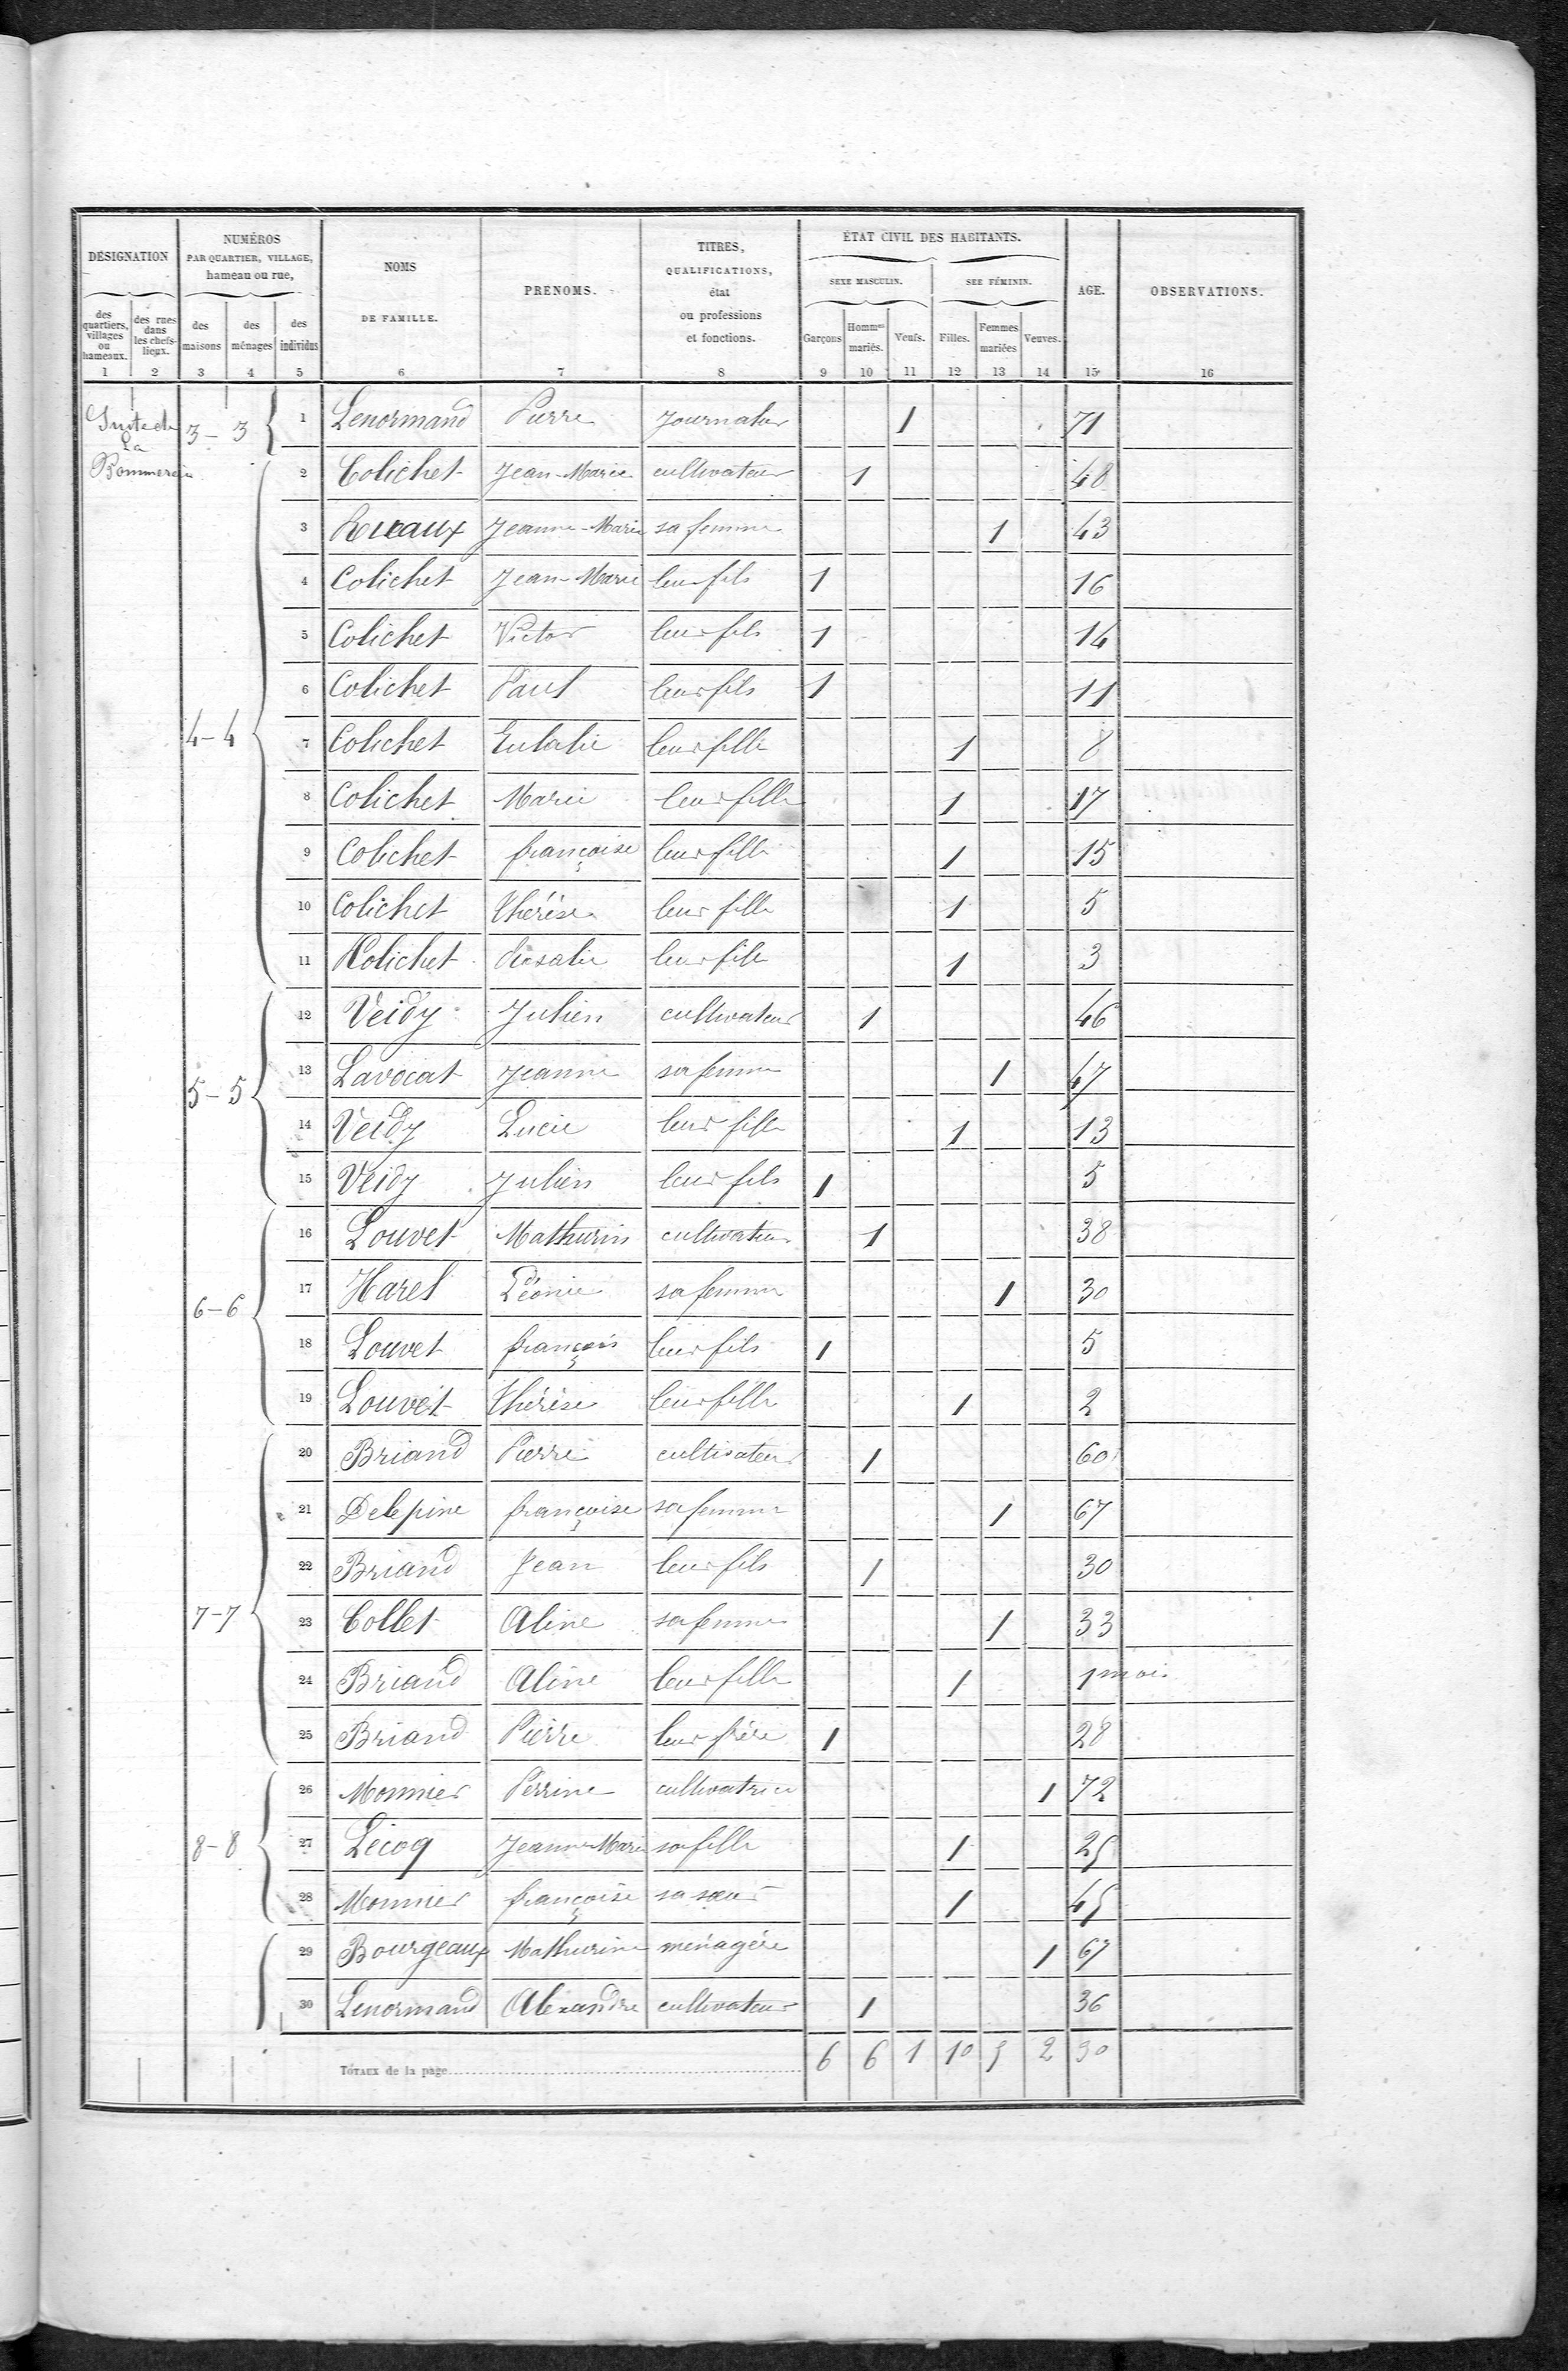 DÉSIGNATION
NUMÉROS
PAR QUARTIER, VILLAGE,
hameau ou rue,
NOMS
DE FAMILLE.
PRÉNOMS.
TITRES,
QUALIFICATIONS,
état
ou professions
et fonctions.
ÉTAT CIVIL DES HABITANTS.
SEXE MASCULIN.
SEE FÉMININ.
AGE.
OBSERVATIONS.
des quartiers, villages ou hameaux.
des rues dans les chefs-lieux.
des maisons
des ménages
des individus
Garçons
Hommes mariés.
Veufs.
Filles.
Femmes mariées
Veuves.
1 2 3 4 5 6 7 8 9 10 11 12 13 14 15 16
Suite de
La
3 - 3 1 Lenormand Pierre journalier 1 71
2 Colichet Jean-Marie cultivateur 1 48
3 Jeanne-Marie sa femme 1 43
4 Colichet Jean-Marie leur fils 1 16
5 Colichet Victor leur fils 1 14
6 Colichet Paul leur fils 1 11
4 - 4 7 Colichet Eulalie leur fille 1 8
8 Colichet Marie leur fille 1 17
9 Colichet françoise leur fille 1 15
10 Colichet Thérèse leur fille 1 5
11 Colichet Rosalie leur fille 1 3
12 Veidy Julien cultivateur 1 46
5 - 5 13 Lavocat Jeanne sa femme 1 47
14 Veidy Lucie leur fille 1 13
15 Veidy Julien leur fils 1 5
16 Louvet Mathurin cultivateur 1 38
6 - 6 17 Harel Léonie sa femme 1 30
18 Louvet françois leur fils 1 5
19 Louvet Thérèse leur fille 1 2
20 Briand Pierre cultivateur 1 60
21 Delepine françoise sa femme 1 67
22 Briand Jean leur fils 1 30
7 - 7 23 Collet Aline sa femme 1 33
24 Briand Aline leur fille 1 1 mois
25 Briand Pierre leur frère 1 28
26 Monnier Perrine cultivatrice 1 72
8 - 8 27 Lecoq Jeanne Marie sa fille 1 25
28 Monnier françoise sa sœur 1 45
29 Bourgeaux Mathurine ménagère 1 67
30 Lenormand Alexandre cultivateur 1 36
TOTAUX de la page 6 6 1 10 5 2 30